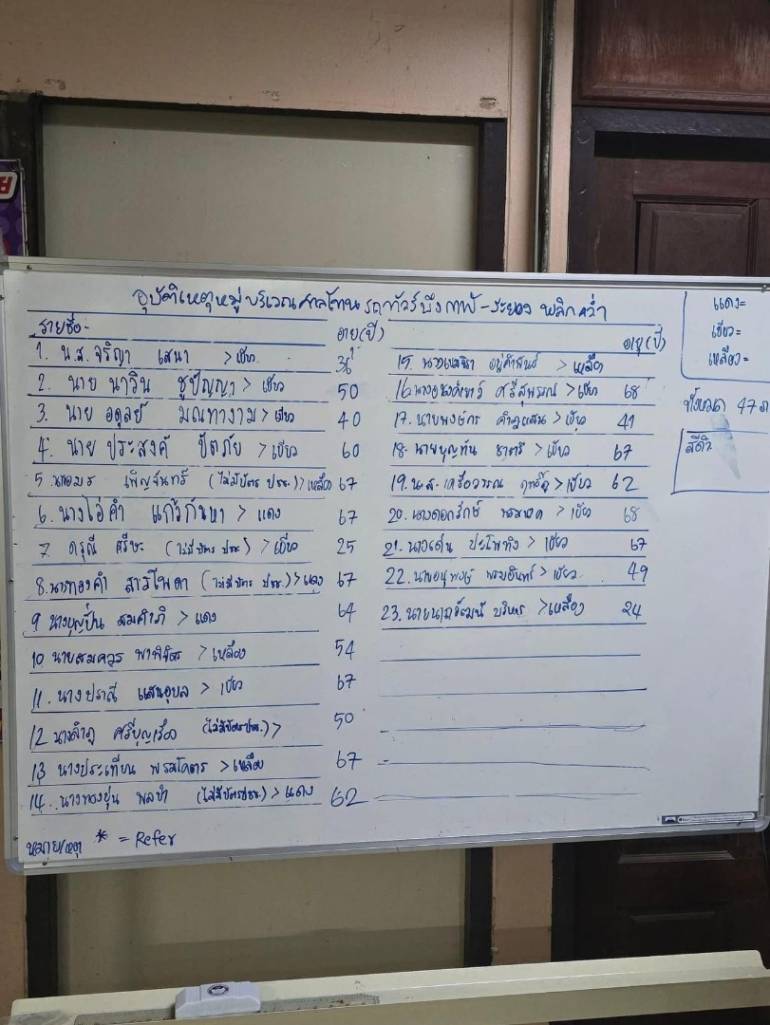 อุบัติเหตุหมู่บริเวณศาลโทน รถทัวร์บึงกาฬ-ระยอง พลิกคว่ำ
รายชื่อ-
อายุ(ปี)
1. น.ส. จริญา เสนา > เขียว 36
2. นาย นาวิน ชูปัญญา > เขียว 50
3. นาย อดุลย์ มณฑางาม > เขียว 40
4. นาย ประสงค์ ปัตภัย > เขียว 60
5. เพ็ญจันทร์ (ไม่มีบัตร ปชช.) > เหลือง 67
6. นางไอ่คำ แก้วกัณหา > แดง 67
7. ดรุณี ศรีษะ (ไม่มีบัตร ปชช) > เขียว 25
8. นางทองคำ สารโพคา (ไม่มีบัตร ปชช.) > แดง 67
9 นางบุญปั่น สมคำภี > แดง 64
10 นายสมควร พาพิจิตร > เหลือง 54
11. นางปราณี แสนอุบล > เขียว 67
12 ศรีบุญเรือง (ไม่มีบัตรปชช.) > 50
13 นางประเทียน พรมโคตร > เหลือง 67
14. นางทองปุ่น พลขำ (ไม่มีบัตรปชช.) > แดง 62
หมายเหตุ * = Refer
อายุ(ปี)
15. > เหลือง
16. ศรีสุพรรณ > เขียว 68
17. นายพงษ์กร > เขียว 41
18. นายบุญทัน > เขียว 67
19. น.ส. เครือวรรณ > เขียว 62
20. นางดอกรักษ์ > เขียว 68
21. > เขียว 67
22. นายอนุพงษ์ พรมอินทร์ > เขียว 49
23. > เหลือง 24
แดง=
เขียว=
เหลือง=
ทั้งหมด 47